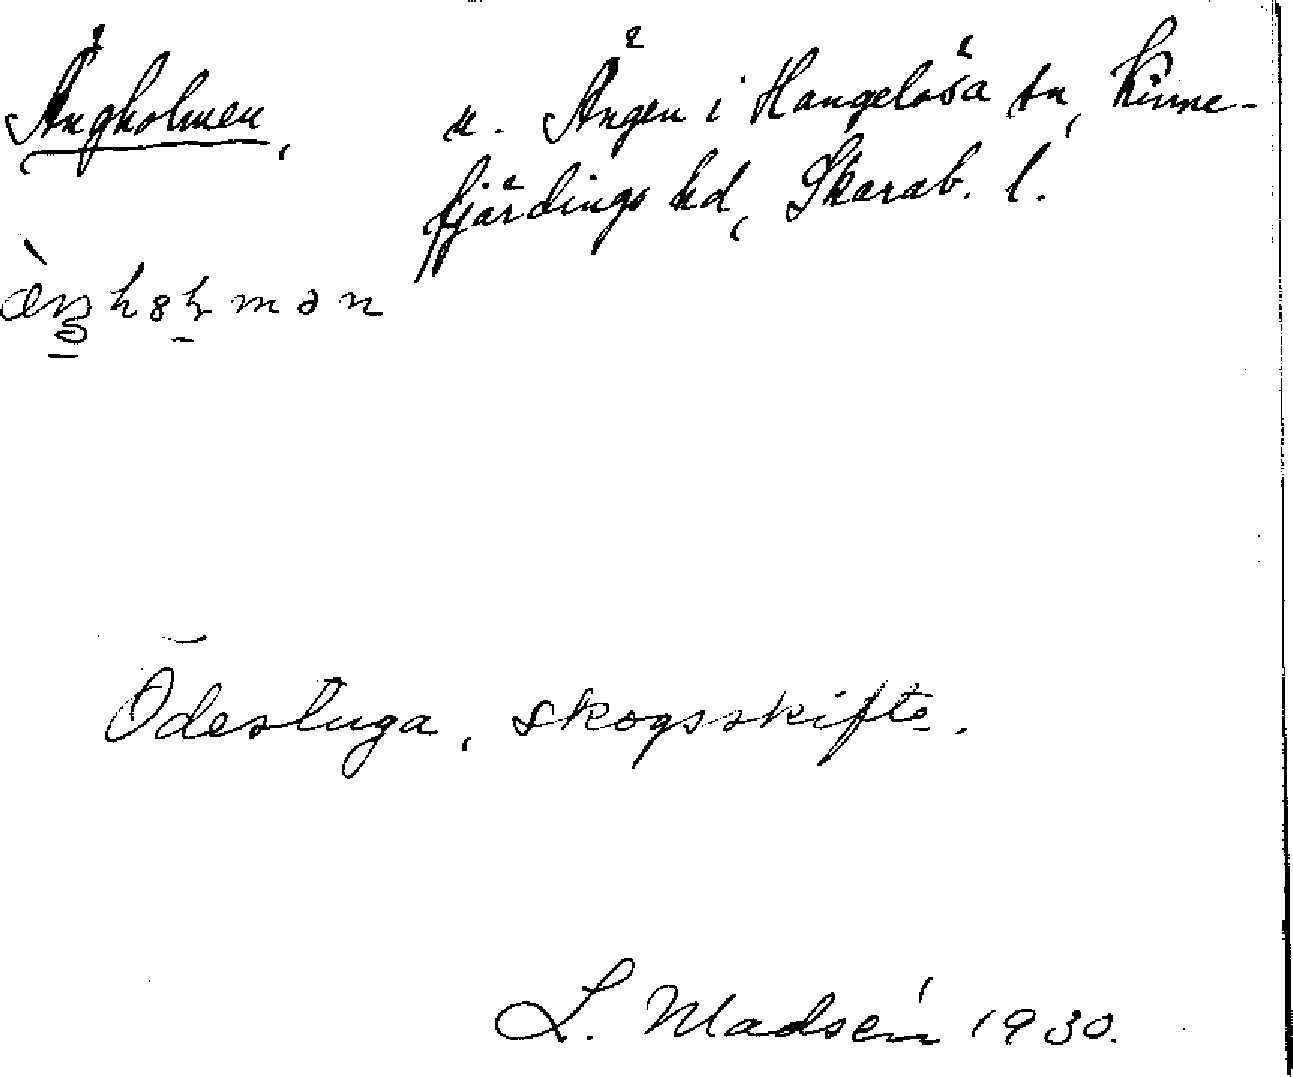 Ängholmen, u. Ängen i Hangelösa sn, Kinne-
fjärdings hd, Skarab. l.
Ödestuga, skogsskifte.
L. Madsén 1930.